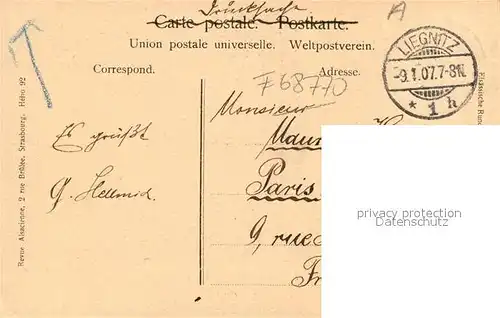 Drucksache
A
Carte postale. Postkarte.
Union postale universelle. Weltpostverein.
Correspond.
Adresse.
LIEGNITZ
-9.1.07.7-8N.
* 1 h
F68770
Monsieur
Maur
Paris
9, rue
Fr
Es grüßt
G. Hellmich
Revue Alsacienne, 2 rue Brûlée, Strasbourg. Hélio 92
Elsässische Rund
privacy protection
Datenschutz